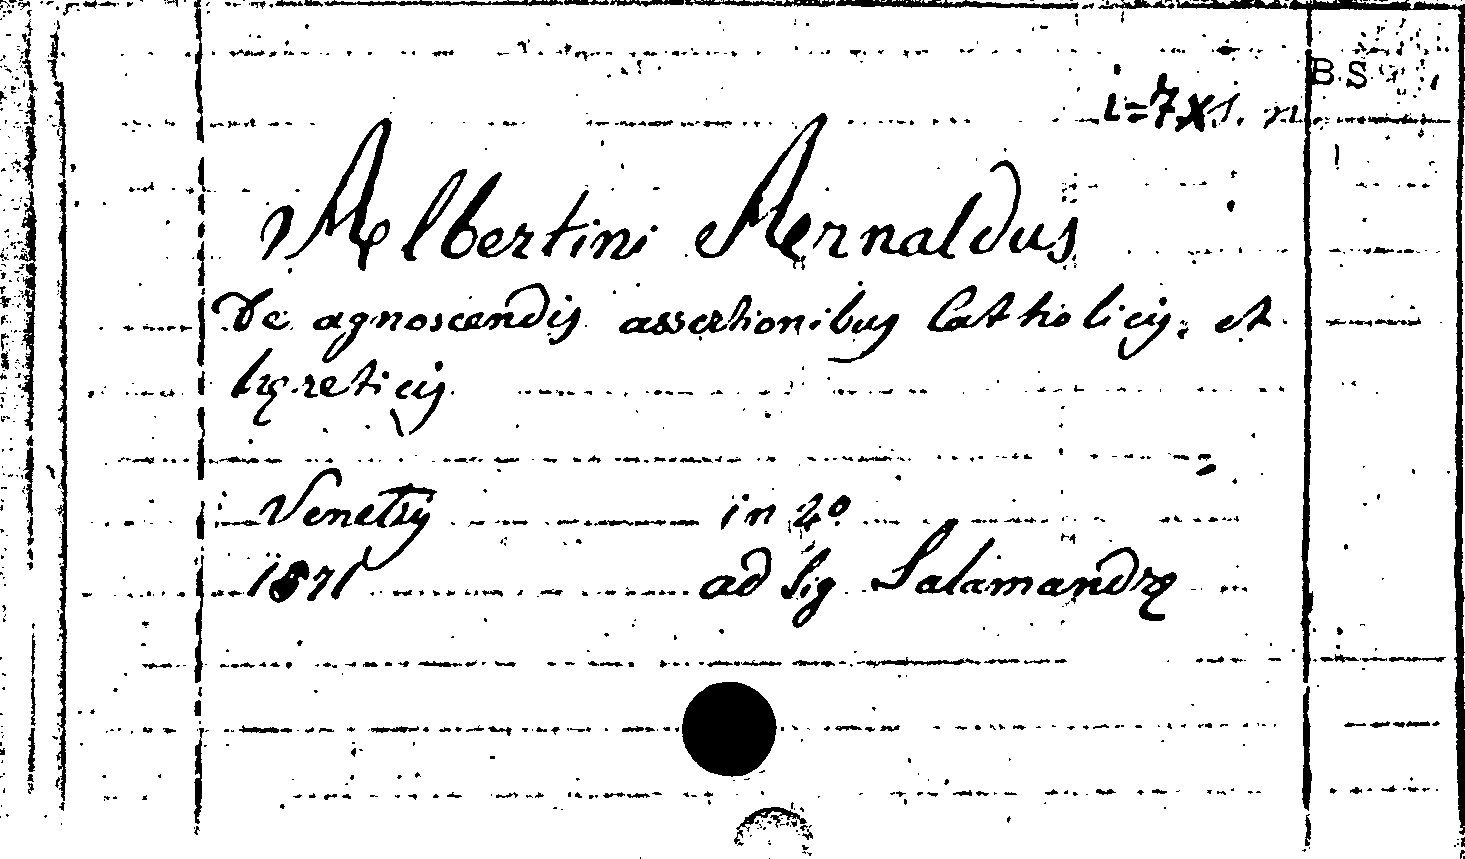 BS
i=7 X s. n
Albertini Arnaldus
De agnoscendis assertionibus Catholicis, et
hęreticis
Venetijs in 4o.
1571 ad sig Salamandrę